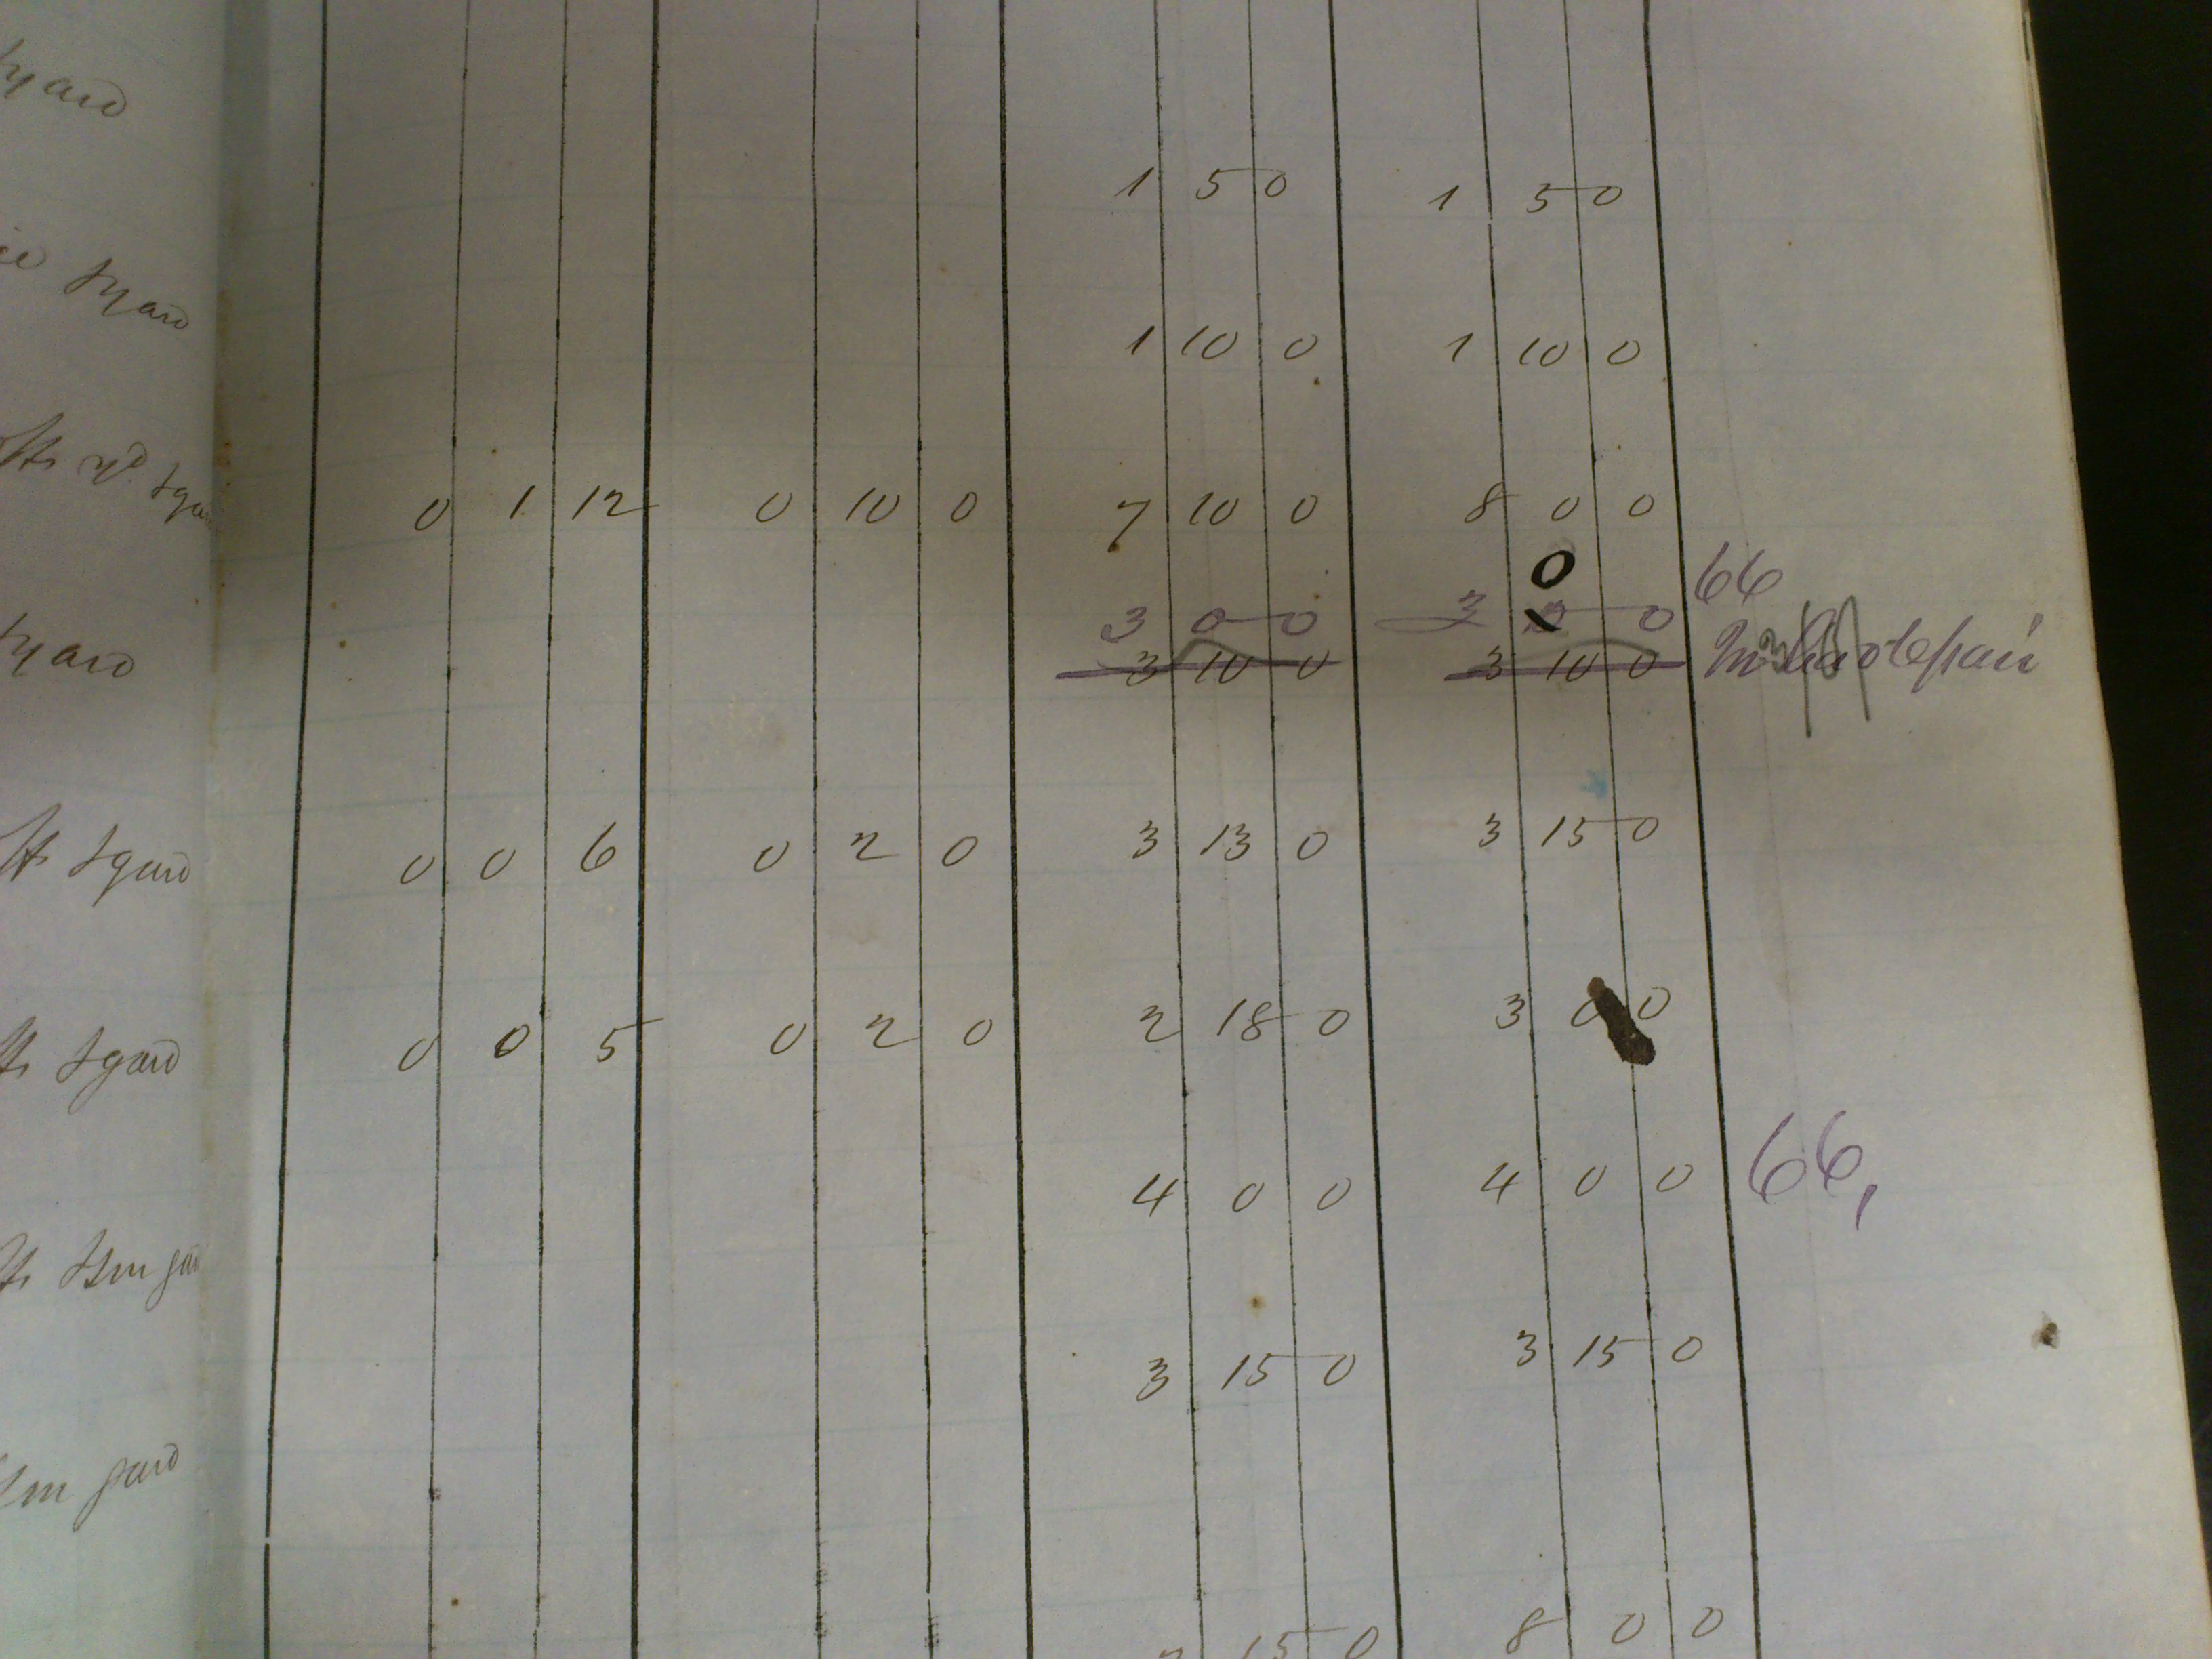 yard
1 5 0 1 5 0
yard
1 10 0 1 10 0
Hs yd & gar
0 1 12 0 10 0 7 10 0 8 0 0
0
3 0 0 3 0 66
yard 3 10 0 3 10 0
Hs & gard 0 0 6 0 2 0 3 13 0 3 15 0
Hs & gard 0 0 5 0 2 0 2 18 0 3 0 0
4 0 0 4 0 0 66,
3 15 0 3 15 0
gard
15 0 8 0 0